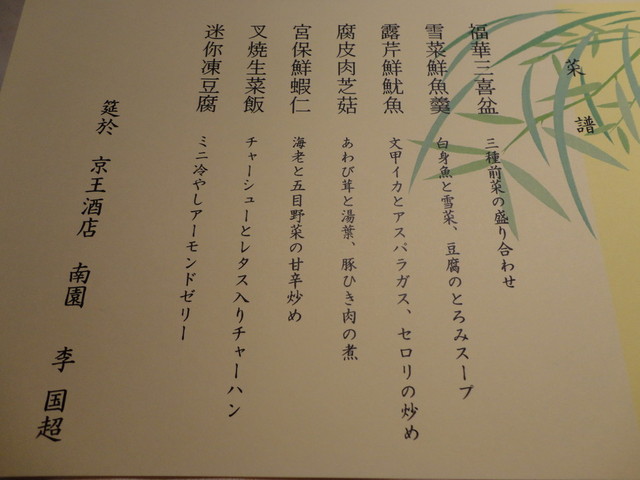 菜譜
福華三喜盆 三種前菜の盛り合わせ
雪菜鮮魚羹 白身魚と雪菜、豆腐のとろみスープ
露芹鮮魷魚 文甲イカとアスパラガス、セロリの炒め
腐皮肉芝菇 あわび茸と湯葉、豚ひき肉の煮
宮保鮮蝦仁 海老と五目野菜の甘辛炒め
叉焼生菜飯 チャーシューとレタス入りチャーハン
迷你凍豆腐 ミニ冷やしアーモンドゼリー
筵於 京王酒店 南園 李 国超